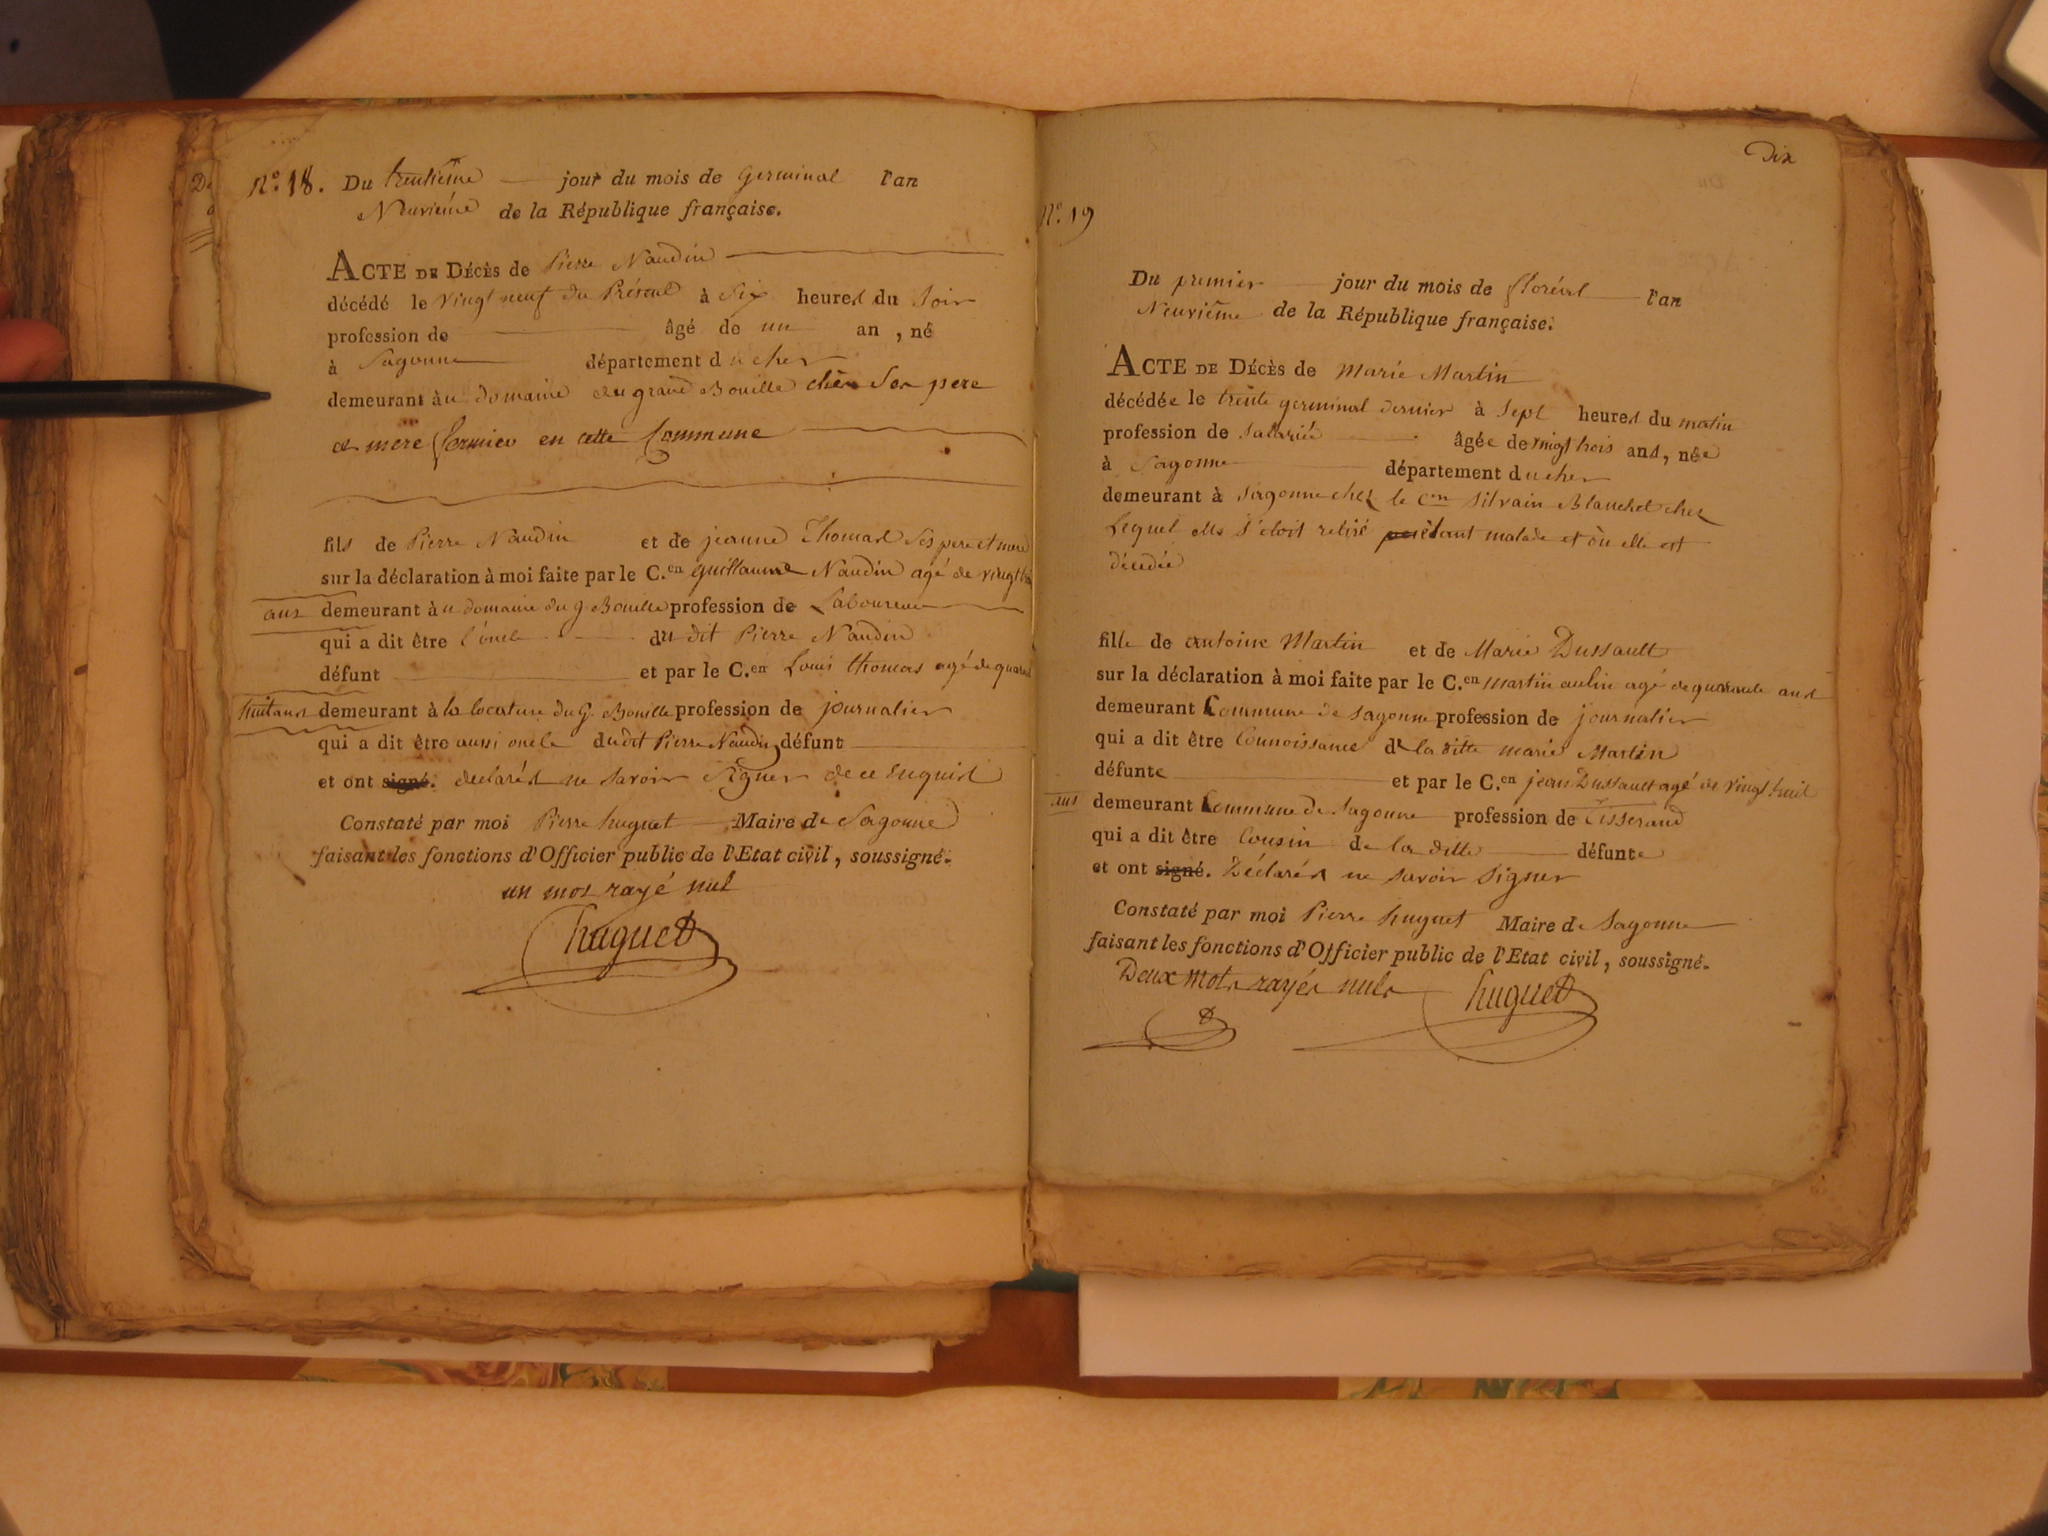 N.º 18. Du trentième jour du mois de Germinal l'an
Neuvième de la République française.
ACTE DE DÉCÈS de Pierre Naudin
décédé le vingt neuf du Présent à Six heures du Soir
profession de âgé de un an, né
à Sagonne département du cher
demeurant àu domaine du grand Bouille chés Ses pere
et mere fermier en cette Commune
fils de Pierre Naudin et de jeanne Thomas Ses pere et mere
sur la déclaration à moi faite par le C.en guillaume Naudin agé de vingt
ans demeurant àu domaine du g. Bouille profession de Laboureur
qui a dit être l'oncle du dit Pierre Naudin
défunt et par le C.en Louis thomas agé de quarante
huit ans demeurant à la locature du G. Bouille profession de journalier
qui a dit être aussi oncle du dit Pierre Naudin défunt
et ont signé. declarés ne savoir Signer de ce Enquis
Constaté par moi Pierre huguet Maire de Sagonne
faisant les fonctions d'Officier public de l'Etat civil, soussigné.
un mot rayé nul
huguet
Dix
N.º 19
Du premier jour du mois de floréal l'an
Neuvième de la République française.
ACTE DE DÉCÈS de Marie Martin
décédée le trente germinal dernier à Sept heures du matin
profession de Salariée âgée de vingt trois ans, née
à Sagonne département du cher
demeurant à Sagonne chez le C.en Silvain Blanchet chez
Lequel elle S'etoit retiré etant malade et où elle est
décédée
fille de antoine Martin et de Marie Dussault
sur la déclaration à moi faite par le C.en Martin aubin agé de quarante ans
demeurant Commune de Sagonne profession de journalier
qui a dit être Connoissance de la ditte marie Martin
défunte et par le C.en jean Dussault agé de vingt huit
ans demeurant Commune de Sagonne profession de Tisserand
qui a dit être Cousin de la ditte défunte
et ont signé. Déclarés ne savoir Signer
Constaté par moi Pierre huguet Maire de Sagonne
faisant les fonctions d'Officier public de l'Etat civil, soussigné.
Deux mots rayés nuls huguet